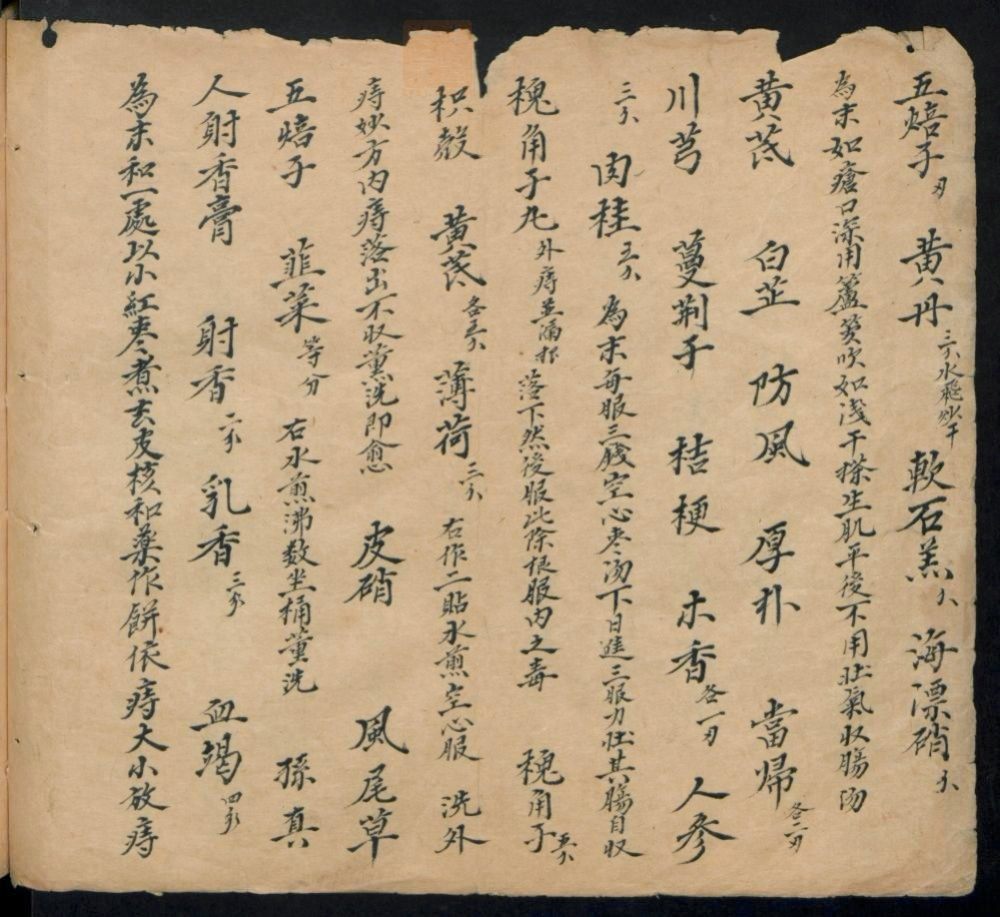 五焙子刄 黄丹三个水飛炒干 軟石羔个 海漂硝个
為末如瘡口深用籚葵吹如淺干搽生肌平後不用壯氣収腸湯
黄芪 白芷 防風 厚朴 當帰各二刄
川芎 蔓荆子 桔梗 木香各一刄 人參
三个 肉桂三个 為末每服三戔空心枣湯下日進三服力壯其腸自収
槐角子丸外痔並漏 落下然後服此除根服内之毒 槐角子五个
枳殻 黄芪各五个 薄荷三个 右作二貼水煎空心服 洗外
痔妙方内痔落出不収薰洗即愈 皮硝 風尾草
五焙子 韮菜等分 右水煎沸数坐桶薰洗 孫真
人射香膏 射香二分 乳香三分 血竭四分
為末和一處以小紅枣煮去皮核和藥作餅依痔大小放痔